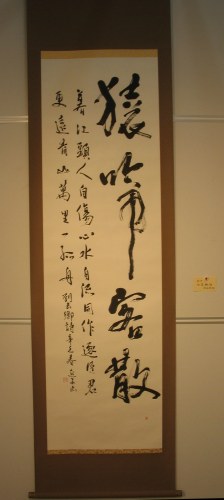 猿啼客散
暮江頭人自傷心水自流同作逐臣君
更遠青山萬里一孤舟 劉長卿詩